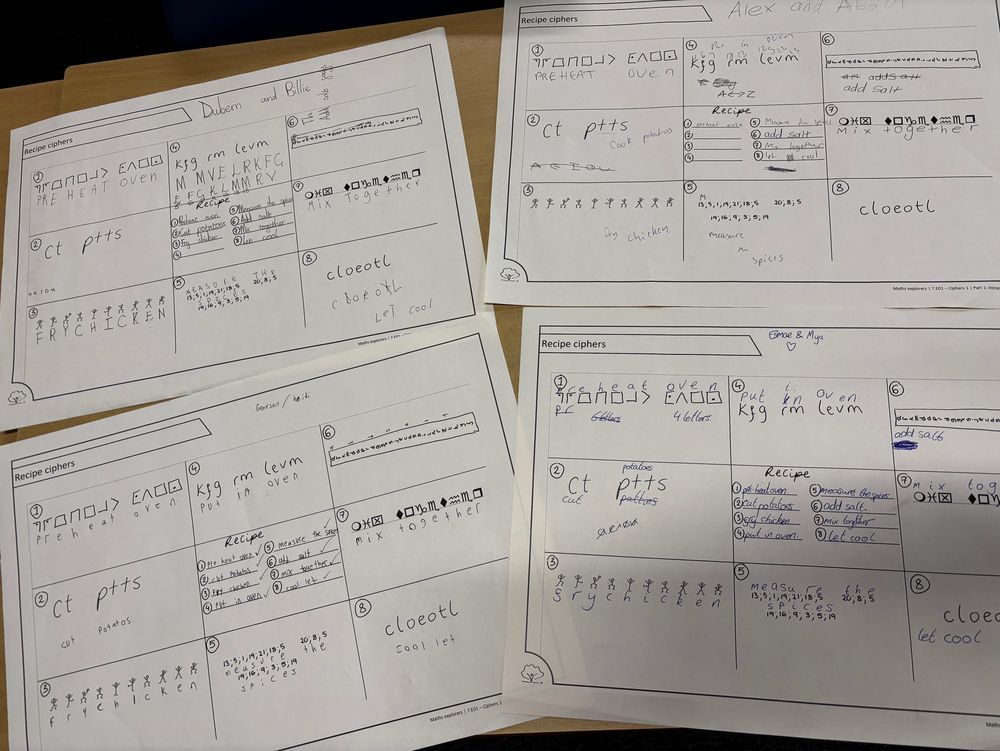 Recipe ciphers
Dubem and Billie
①
PRE HEAT oven
②
Ct ptts
③
FRYCHICKEN
④
Kfg rm levm
M MVELRKFG
Recipe
① Preheat oven
② Cut potatoes
③ Fry chicken
④
⑤ Measure the spices
⑥ Add salt
⑦ Mix together
⑧ Let cool
⑤
MEASURE THE
13,5,1,19,21,18,5 20,8,5
SPICES
19,16,9,3,5,19
⑥
⑦
Mix Together
⑧
cloeotl
cloeotl
LET cool
Maths explorers | 7.E01 – Ciphers 1
Recipe ciphers
Alex and
①
PREHEAT Oven
②
Ct ptts
Cook potatoes
A E I O U
③
fry chicken
④
Put in oven
Kfg rm levm
A↔Z
Recipe
① preheat oven
②
③
④
⑤ Measure the spices
⑥ add salt
⑦ Mix together
⑧ let cool
⑤
M
13,5,1,19,21,18,5 20,8,5
19,16,9,3,5,19
measure
the
spices
⑥
add salt
⑦
Mix together
⑧
cloeotl
Maths explorers | 7.E01 – Ciphers 1 | Part 1: Intro
Recipe ciphers
①
Preheat oven
②
Ct ptts
cut Potatos
③
frychicken
④
Kfg rm levm
Put in oven
Recipe
① Pre heat oven ✓
② cut Potatos ✓
③ Fry chicken ✓
④ Put in oven ✓
⑤ measure the spices ✓
⑥ add salt ✓
⑦ mix together ✓
⑧ cool let ✓
⑤
13,5,1,19,21,18,5 20,8,5
measure the
19,16,9,3,5,19
spices
⑥
⑦
mix together
⑧
cloeotl
cool let
Maths explorers | 7.E01 – Ciphers 1
Recipe ciphers
Esmae & Mya
♡
①
Preheat oven
Pr 6 letters 4 letters
②
potatoes
Ct ptts
cut
③
Srychicken
④
put in Oven
Kfg rm levm
Recipe
① pre-heat oven
② cut potatoes
③ fry chicken
④ put in oven
⑤ measure the spices
⑥ add salt.
⑦ Mix together
⑧ let cool
⑤
measure the
13,5,1,19,21,18,5 20,8,5
spices
19,16,9,3,5,19
⑥
add salt
⑦
mix tog
⑧
cloeo
let cool
Maths explorers | 7.E01 – Ciphers 1